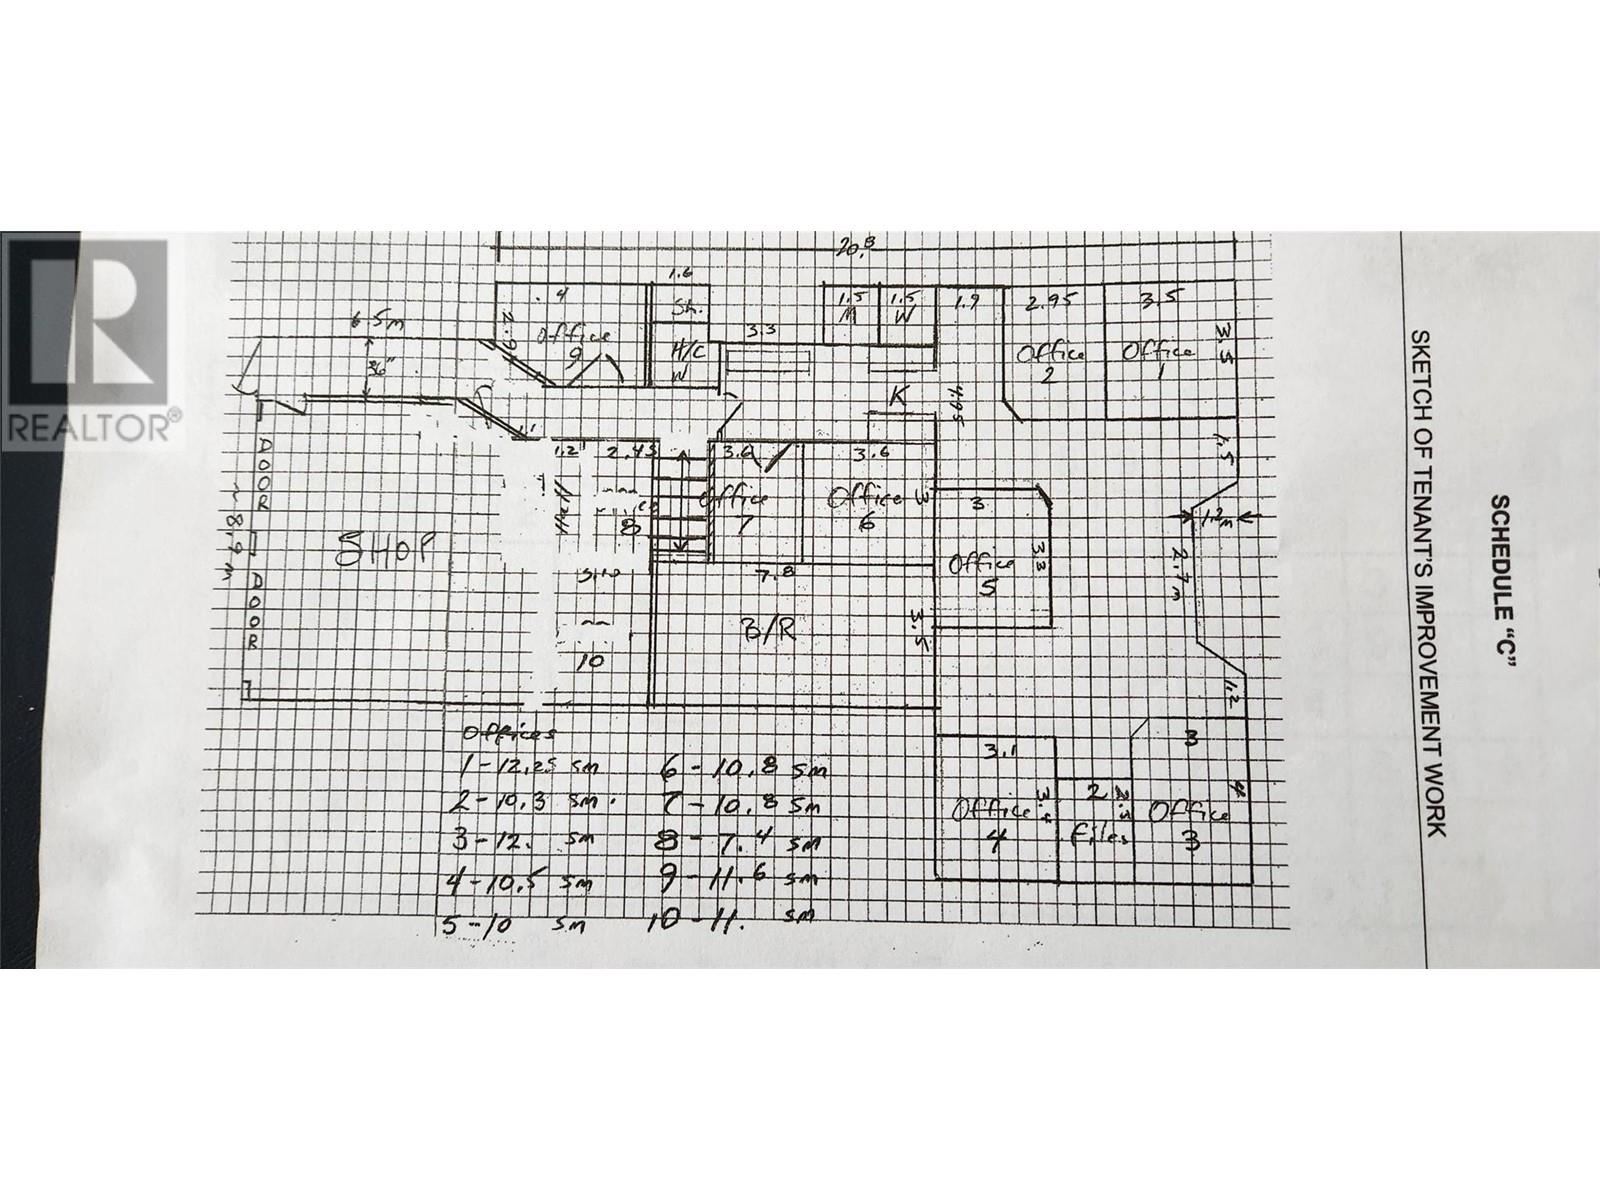 REALTOR®
SCHEDULE "C"
SKETCH OF TENANT'S IMPROVEMENT WORK
20.8
1.6
4
Sh.
1.5
M
1.5
W
1.9
2.95
3.5
6.5m
2.9
Office
9
3.3
H/C
W
Office
2
Office
1
3.5
36"
K
4.95
1.5
DOOR
1.2
2.45
3.6
3.6
Office
7
Office
6
3
3
8
1.2m
~8.9m
SHOP
3.3
Office
5
2.7m
7.8
DOOR
B/R
3.5
10
1.2
3.1
3
4
Office
4
3.4
2
Files
Office
3
Offices
1-12.25 sm
2-10.3 sm.
3-12. sm
4-10.5 sm
5-10 sm
6-10.8 sm
7-10.8 sm
8-7.4 sm
9-11.6 sm
10-11. sm